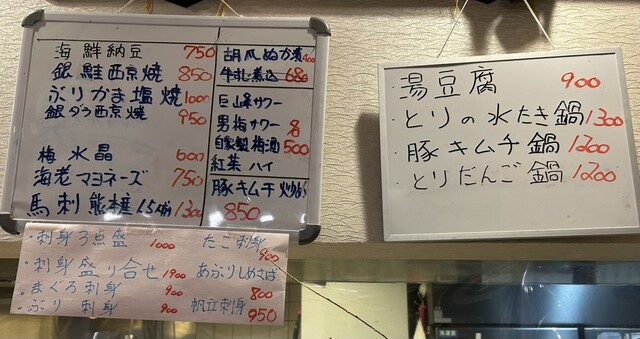 海鮮納豆 750
銀鮭西京焼 850
ぶりかま塩焼 1000
銀ダラ西京焼 950
梅水晶 600
海老マヨネーズ 750
馬刺 熊本産 1300
胡瓜ぬか漬 400
牛すじ煮込 680
巨峰サワー
男梅サワー 各
自家製梅酒 500
紅茶ハイ
豚キムチ炒め
850
・刺身3点盛 1000
・刺身盛り合せ 1900
・まぐろ刺身 900
・ぶり刺身 900
たこ刺身 900
あぶりしめさば 800
帆立刺身 950
・湯豆腐 900
・とりの水たき鍋 1300
・豚キムチ鍋 1200
・とりだんご鍋 1200